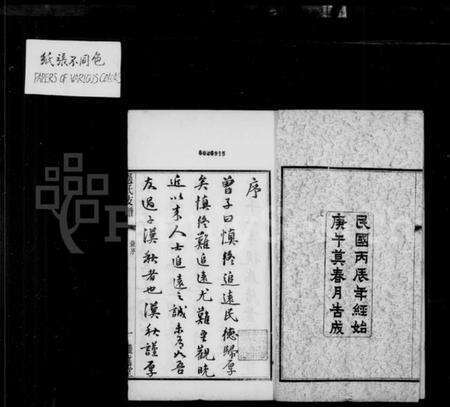 紙張不同色
PAPERS OF VARIOUS COLORS
民國丙辰年經始
庚午莫春月告成
序
曾子曰慎終追遠民德歸厚
矣慎終難追遠尤難生觀晚
近以來人士追遠之誠未有如吾
友過子漢秋者也漢秋謹厚
氏支譜